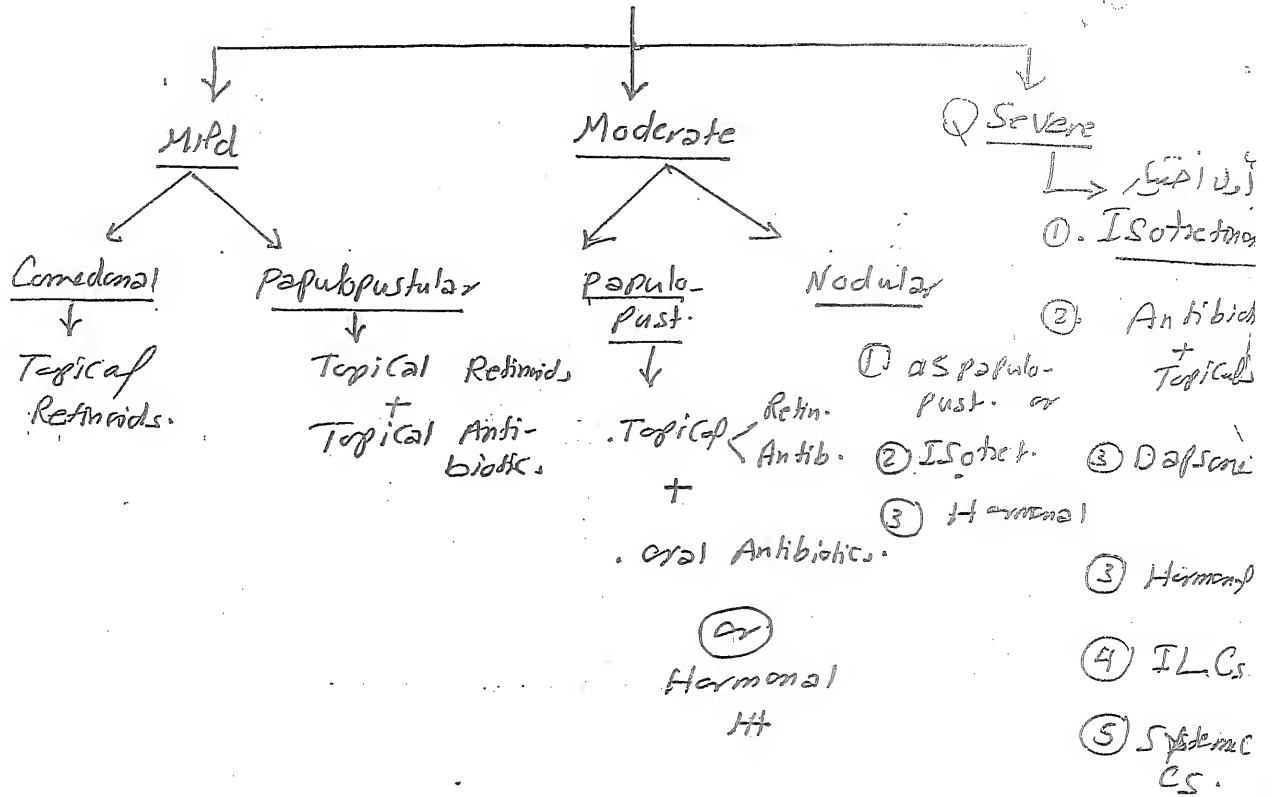 Mild
Comedonal
Topical
Retinoids.
Papulopustular
Topical Retinoids
+
Topical Anti-
biotic.
Moderate
Papulo-
Pust.
. Topical Retin.
Antib.
+
. oral Antibiotics.
or
Hormonal
Nodular
① as papulo-
pust. or
② Isotret.
③ Hormonal
Q Severe
أول اختيار
①. Isotretino
② Antibiot
+
Topicals
③ Dapsone
③ Hormonal
④ ILCs
⑤ Systemic
CS.